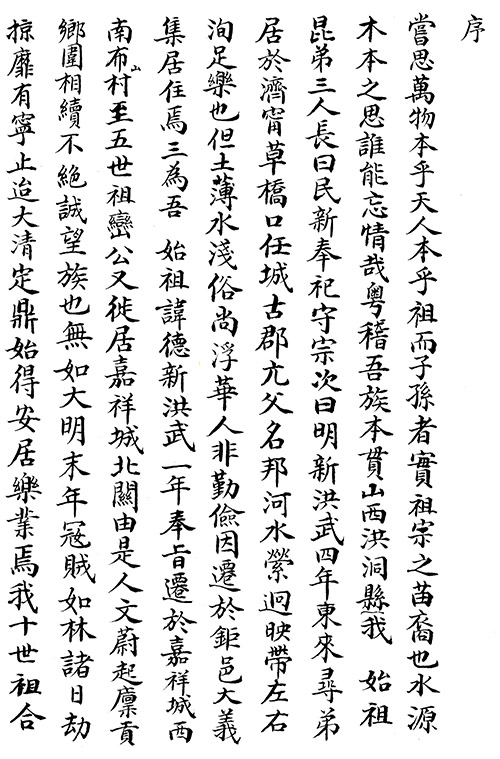 序
嘗思萬物本乎天人本乎祖而子孫者實祖宗之苗裔也水源
木本之思誰能忘情哉粵稽吾族本貫山西洪洞縣我　始祖
昆弟三人長曰民新奉祀守宗次曰明新洪武四年東來尋弟
居於濟甯草橋口任城古郡亢父名邦河水縈迴映帶左右
洵足樂也但土薄水淺俗尚浮華人非勤儉因遷於鉅邑大義
集居住焉三為吾　始祖諱德新洪武一年奉旨遷於嘉祥城西
南布山村至五世祖巒公又徙居嘉祥城北關由是人文蔚起廩貢
鄉圍相續不絕誠望族也無如大明末年寇賊如林諸日劫
掠靡有寧止迨大清定鼎始得安居樂業焉我十世祖合